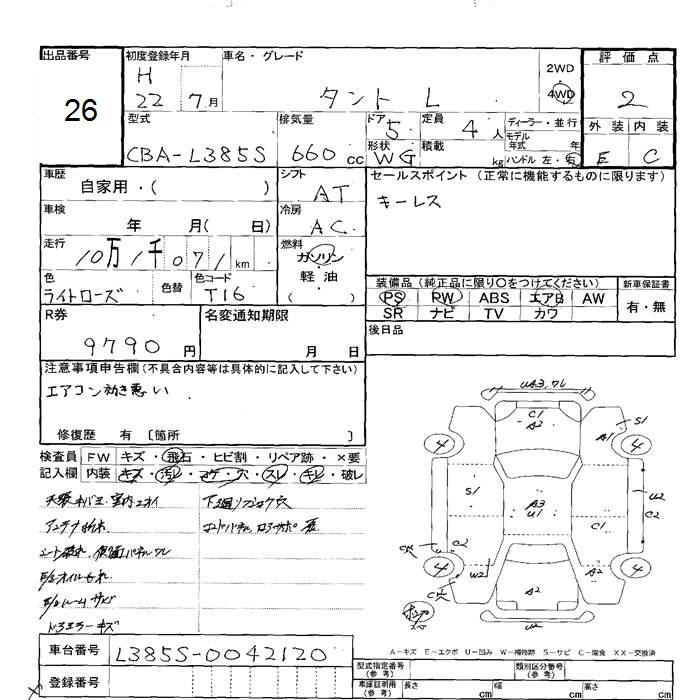 出品番号
26
初度登録年月
H
22 7月
車名・グレード
タント L
2WD
4WD
評価点
2
型式
CBA-L385S
排気量
660 cc
ドア
5
形状
WG
定員
4 人
積載
kg
ディーラー・並行
モデル
年式 年
ハンドル 左・右
外装 内装
E C
車歴
自家用・( )
シフト
AT
セールスポイント (正常に機能するものに限ります)
キーレス
車検
年 月( 日)
冷房
AC
走行
10万1千071 km
燃料
ガソリン
軽油
( )
色
ライトローズ
色替
色コード
T16
装備品 (純正品に限り○をつけてください)
PS PW ABS エアB AW
SR ナビ TV カワ
新車保証書
有・無
R券
9790 円
名変通知期限
月 日
後日品
注意事項申告欄 (不具合内容等は具体的に記入して下さい)
エアコン効き悪い
修復歴 有 〔箇所 〕
検査員
記入欄
FW キズ・飛石・ヒビ割・リペア跡・×要
内装 キズ・汚レ・コゲ・穴・スレ・キレ・破レ
下廻リ
シート
オイルモレ
ドアミラーキズ
UA3.ワレ
C1
A2
A1
S1
4
4
S1
A3
U1
C1
U2
C2
C2
W2
A2
A2
4
4
U2
A-キズ E-エクボ U-凹み W-補修跡 S-サビ C-腐食 XX-交換済
車台番号
L385S-0042120
登録番号
型式指定番号
(参考)
類別区分番号
(参考)
車庫証明用
(参考)
長さ cm
幅 cm
高さ cm